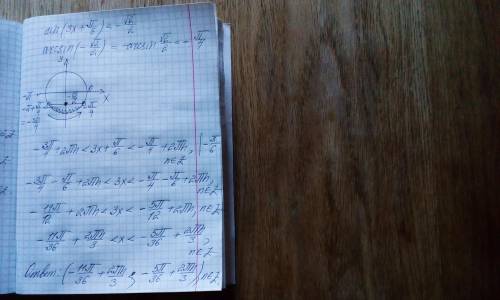 sin(3x+π/6) = -√2/2
arcsin(-√2/2) = -arcsin √2/2 = -π/4
y
-π
x
-π+π/4
-π/4
=-3π/4
-3π/4+2πn<3x+π/6<-π/4+2πn, |-π/6
n∈Z
-3π/4-π/6+2πn<3x<-π/4-π/6+2πn,
n∈Z
-11π/12+2πn<3x<-5π/12+2πn, n∈Z
-11π/36+2πn/3<x<-5π/36+2πn/3,
n∈Z
Ответ: (-11π/36+2πn/3; -5π/36+2πn/3) n∈Z